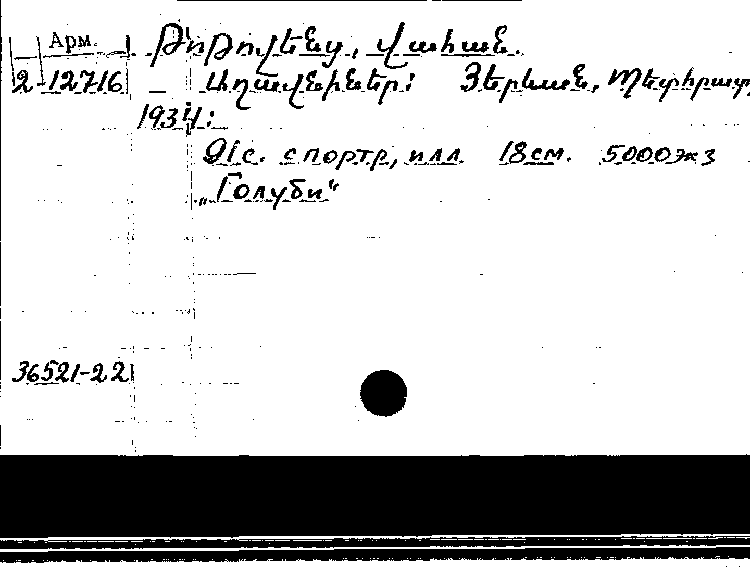 Арм.
Թոթովենց, Վահան.
2-12716
Աղավնիներ: Յերևան, Պետհրատ
1934:
91с. с портр, илл. 18см. 5000экз
„Голуби“
36521-22